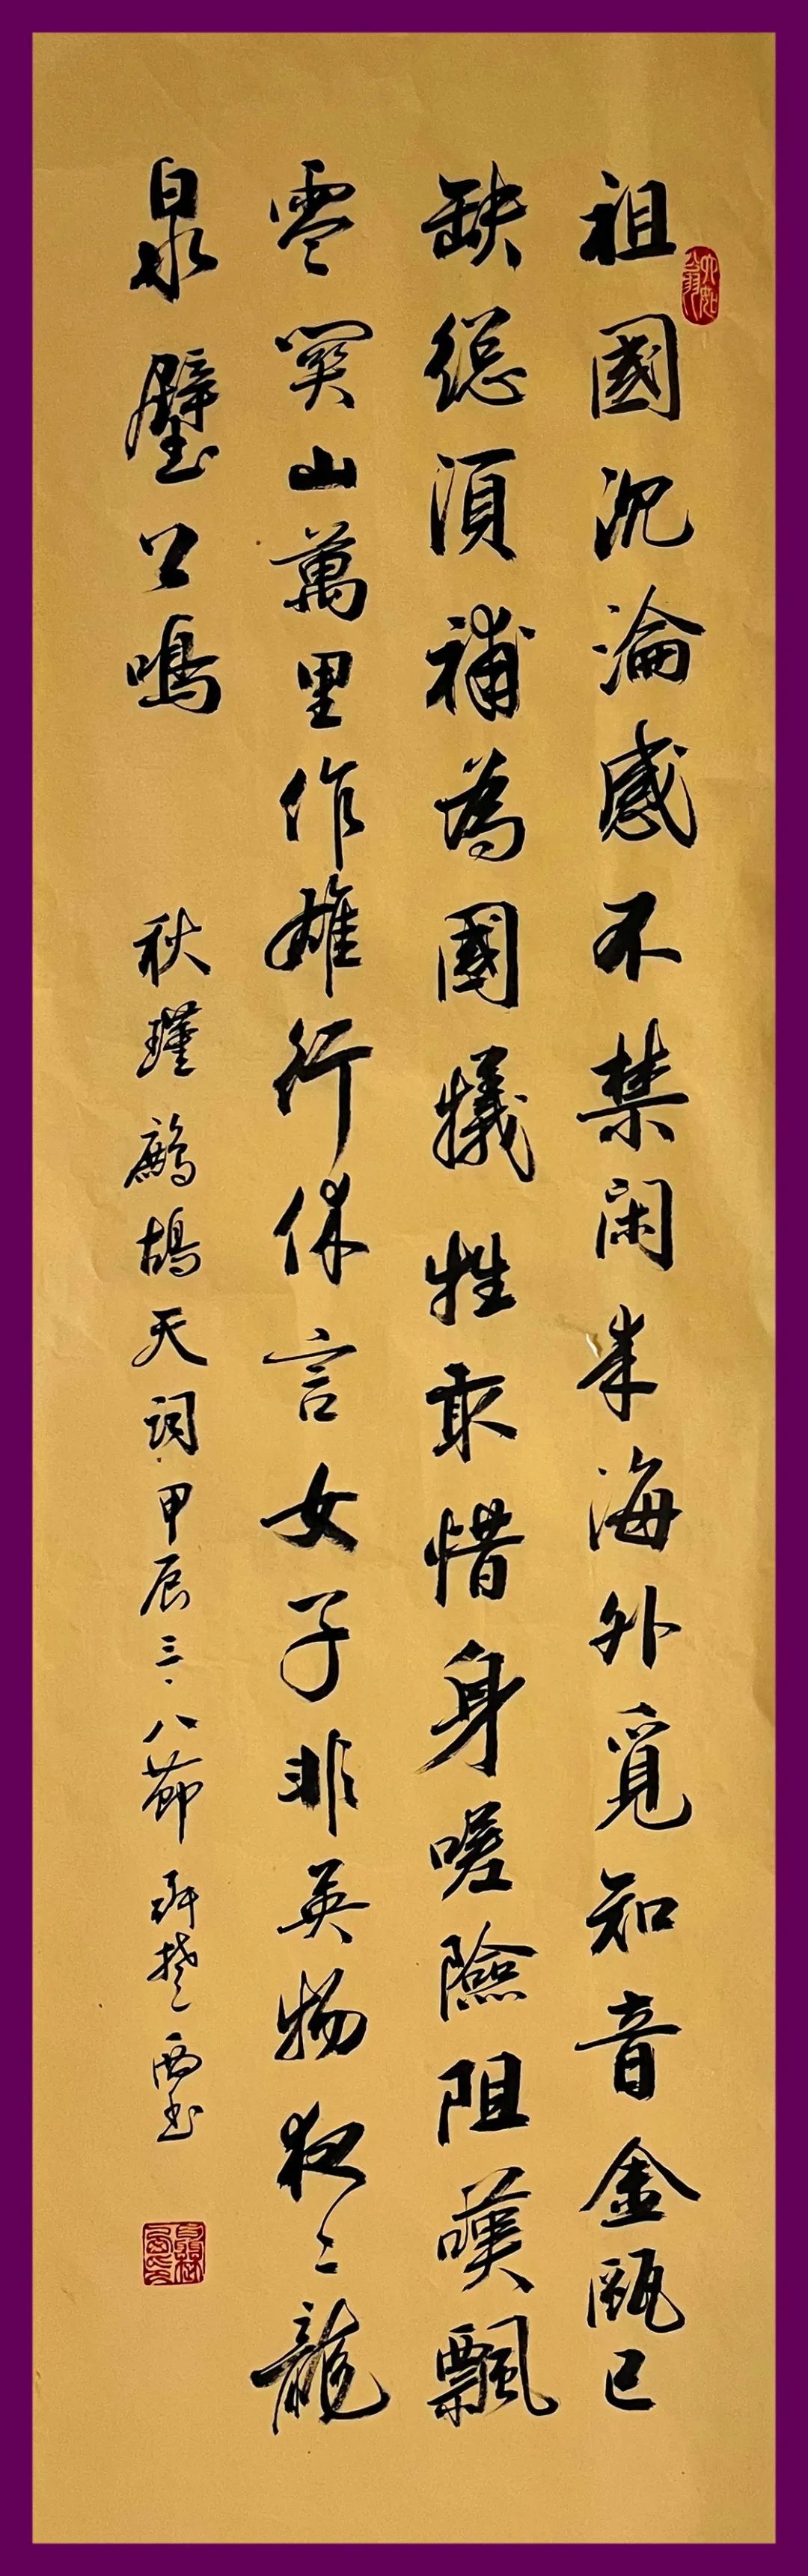 祖國沉淪感不禁閑来海外覓知音金甌已
缺總須補為國犧牲敢惜身嗟險阻嘆飄
零關山萬里作雄行休言女子非英物夜々龍
泉璧上鳴
秋瑾鷓鴣天詞甲辰三·八節